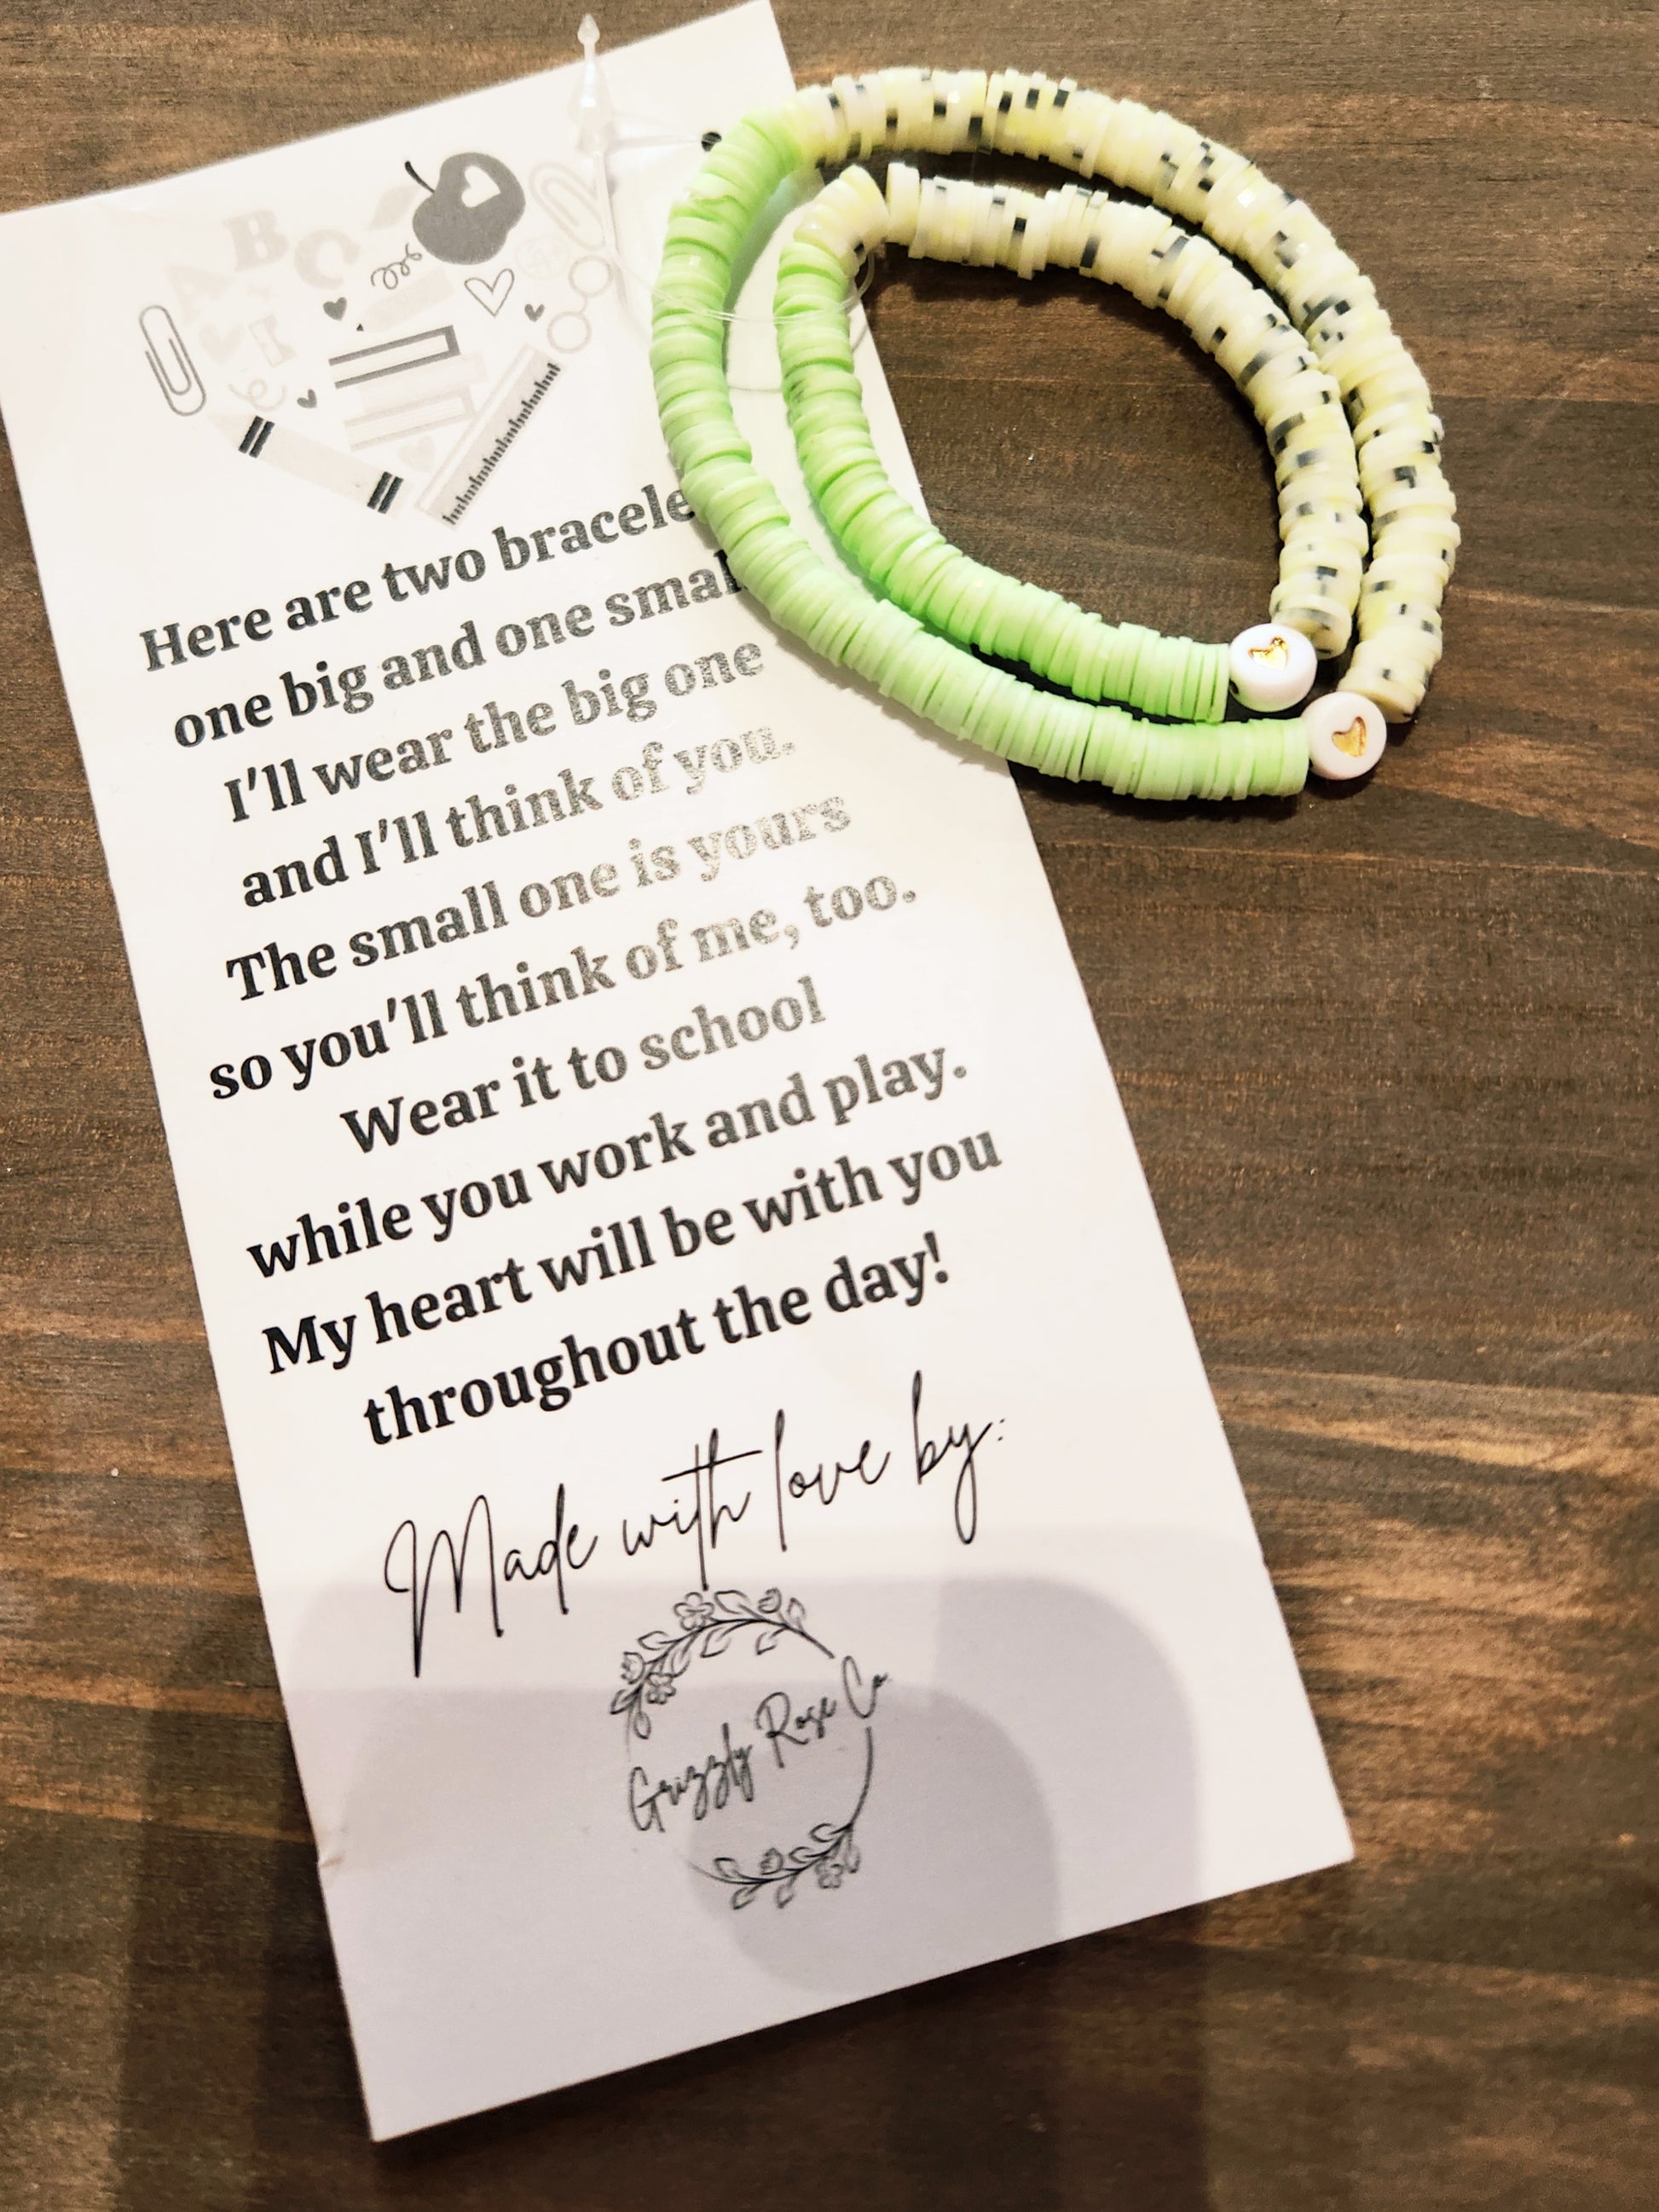 A B C
Here are two bracele
one big and one smal
I'll wear the big one
and I'll think of you.
The small one is yours
so you'll think of me, too.
Wear it to school
while you work and play.
My heart will be with you
throughout the day!
Made with love by:
Grizzly Rose Co